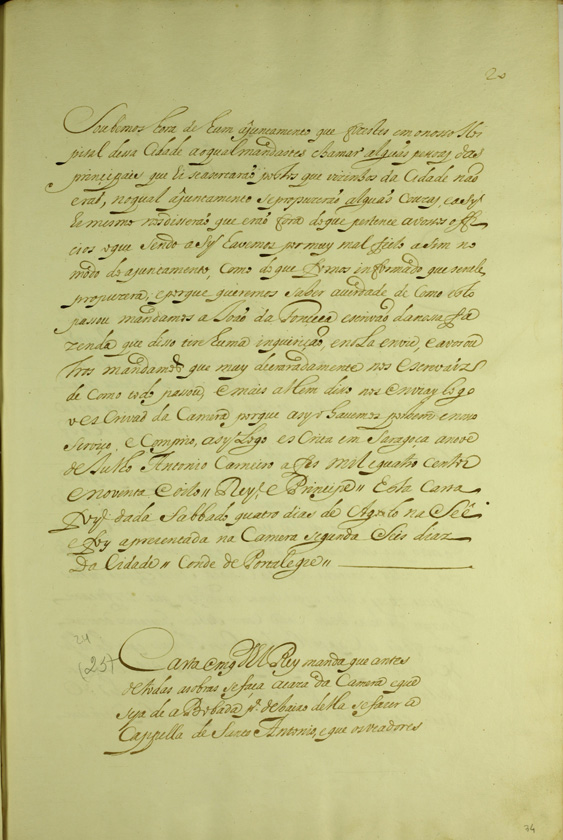 20
Soubemos hora de hum ajuntamento que fizestes em o nosso Hos
pital dessa Cidade ao qual mandastes chamar alguãs pessoas das
principais que se escuzarão pois que vizinhos da Cidade não
erão, no qual ajuntamento se propuzerão alguãs couzas, e asy
de mesmo nos disserão que erão fora do que pertence a vossos offi
cios o que sendo asy havemos por muy mal feito asim no
modo do ajuntamento, como do que fomos informado que nelle
propuzera, e porque queremos saber averdade de como isto
passou mandamos a João da Fonseca escrivão da nossa fa
zenda que disso tire huma inquirição, e nola envie, e a vos ou
tros mandamos que muy declaradamente nos escrevais
de como todo passou, e mais alem disso nos enviay logo
o escrivão da Camera porque asy o havemos por bem e nosso
serviço, e comprio, asy logo escrita em Saragoça a nove
de Julho Antonio Carneiro a fes mil e quatro centos
e noventa e oito // Rey, e Principe // E esta Carta
foy dada Sabbado quatro dias de Agosto na Sêe
e foy aprezentada na Camera segunda seis do az
Da Cidade // Conde de Portalegre //
24
(25)
Carta em q̃ El Rey manda que antes
de todas as obras se faça a caza da Camera e que
seja de abobada p.r debaixo della se fazer a
Cappella de Santo Antonio, e que os vreadores
34